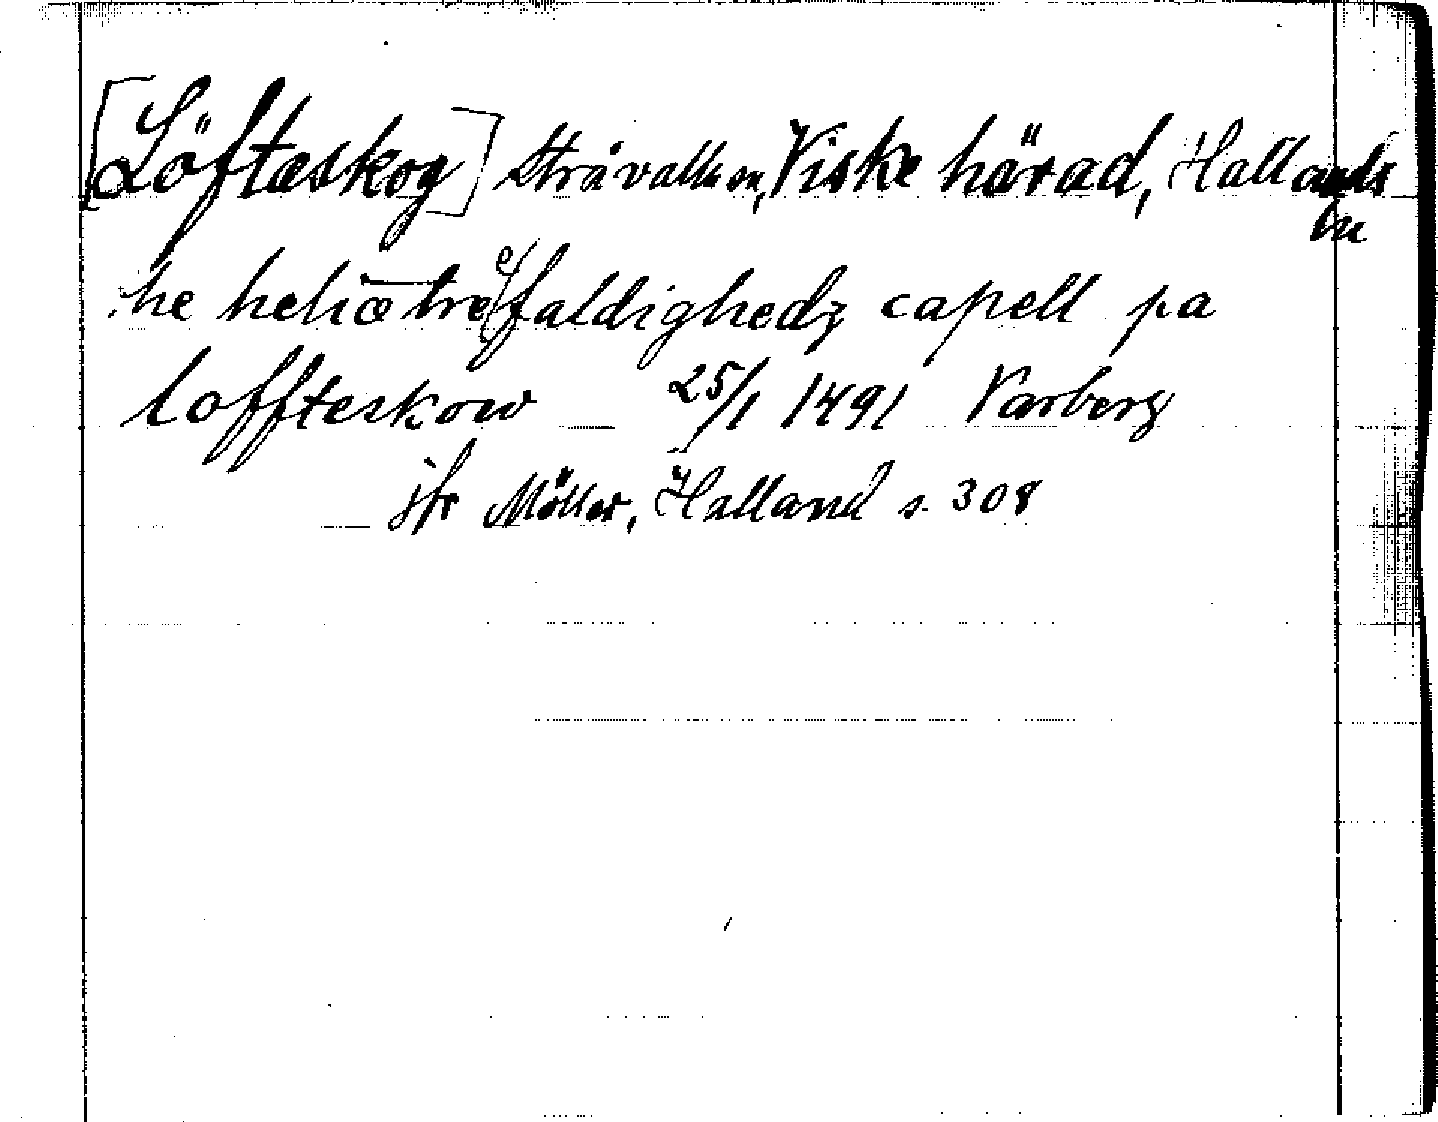 [Löftæskog] Stråvalla sn, Viske härad, Hallands
län
he heliæ tre(e)faldighedz capell pa
loffteskow 25/1 1491 Varberg
jfr Möller, Halland s. 308